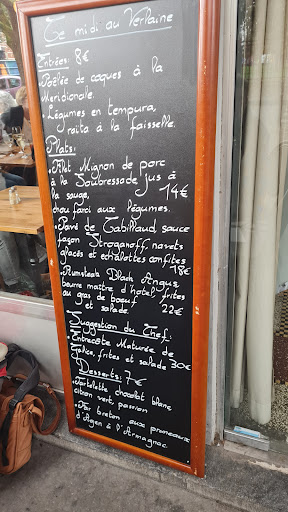 Ce midi au Verlaine
Entrées: 8€
• Poêlée de coques à la
Meridionale.
• Légumes en tempura,
raita à la faisselle.
Plats:
• Filet Mignon de porc
à la Soubressade jus à
la sauge, 14€
chou farci aux légumes.
Pavé de Cabillaud, sauce
façon Stroganoff, navets
glacés et echalottes confites
18€
• Rumsteack Black Angus
beurre maître d'hotel, frites
au gras de boeuf
et salade. 22€
Suggestion du Chef:
• Entrecôte Maturée de
Galice, frites et salade 30€
Desserts: 7€
• Tartelette chocolat blanc
citron vert, passion
• Far breton aux pruneaux
d'Agen à l'Armagnac